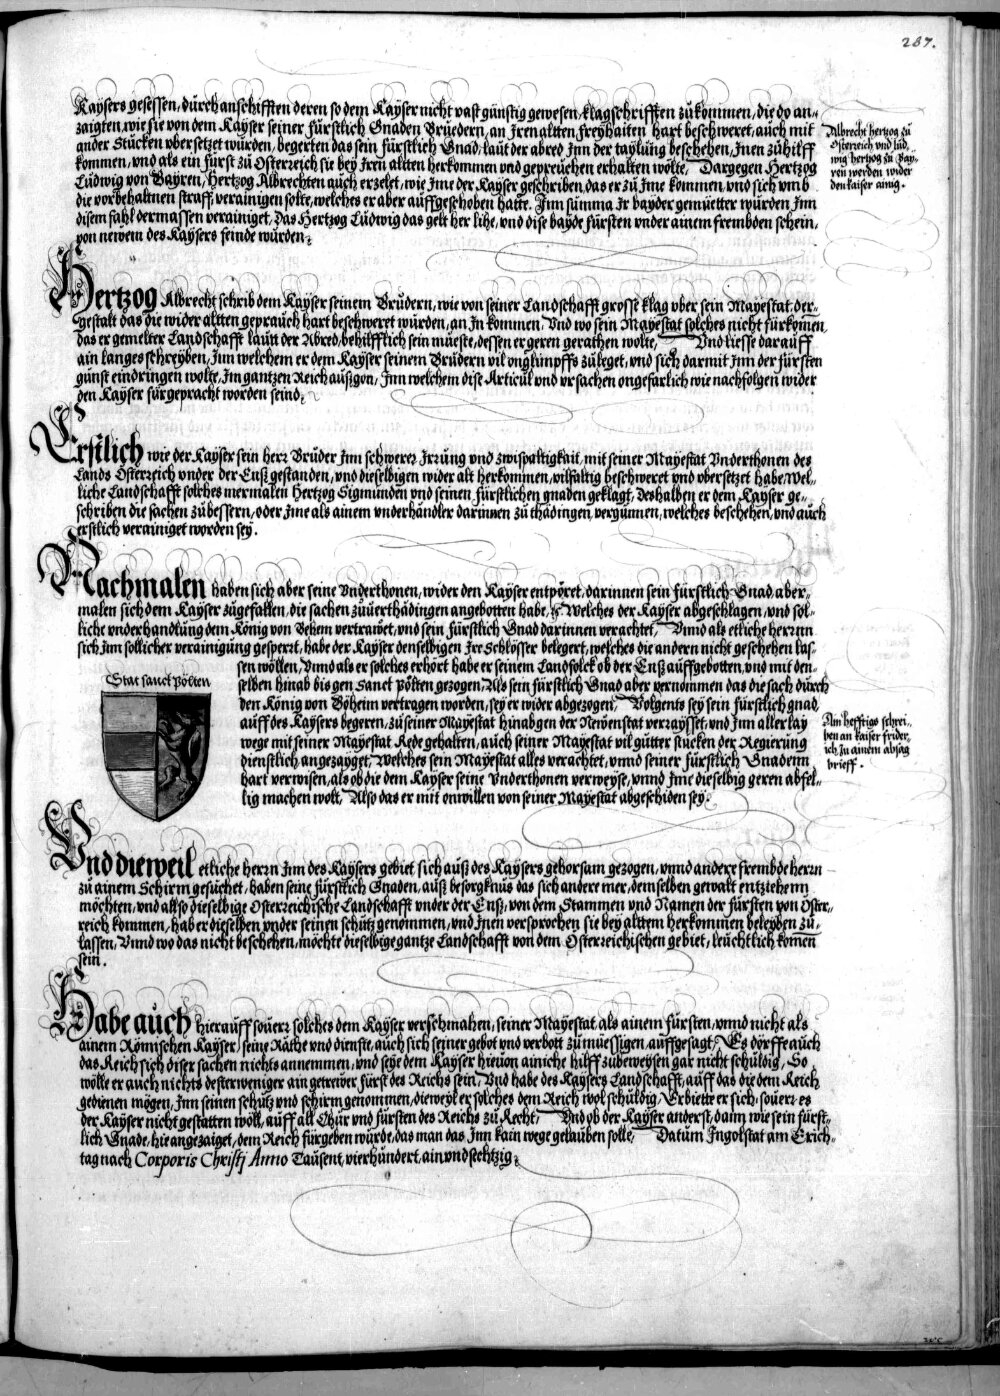 287.
Kaÿsers gesessen, dürch anschifften deren so dem Kaÿser nicht vast günstig gewesen, klagschrifften zükommen, die do an-
zaigten, wie sie von dem Kaÿser seiner fürstlich Gnaden Brüedern, an Iren altten freÿhaiten hart beschweret, aüch mit
ander Stücken vbersetzet würden, begerten das sein fürstlich Gnad, laüt der abred Inn der taÿlüng beschehen, Inen zühilff
kommen, vnd als ein fürst zü Osterreich sie beÿ Iren altten herkommen vnd gepreüchen erhalten wölte, Dargegen Hertzog
Lüdwig von Baÿren, Hertzog Albrechten aüch erzelet, wie Ime der Kaÿser geschriben, das er zü Ime kommen, vnd sich vmb
die vorbehaltnen straff, verainigen solte, welches er aber aüffgeschoben hatte. Inn sümma Ir baÿder gemüetter würden Inn
disem fahl dermassen verainiget, Das Hertzog Lüdwig das gelt her lihe, vnd dise baÿde fürsten vnder ainem frembden schein,
von newem des Kaÿsers feinde würden.
Albrecht hertzog zü
Osterreich vnd lüd,
wig hertzog zü Baÿ,
ren werden wider
den kaiser ainig.
Hertzog Albrecht schrib dem Kaÿser seinem Brüdern, wie von seiner Landschafft grosse klag vber sein Maÿestat der-
gestalt das die wider altten gepraüch hart beschweret würden, an In kommen, Vnd wo sein Maÿestat solches nicht fürkomen,
das er gemelter Landschafft laütt der Abred, behilfflich sein müeste, dessen er geren gerathen wolte, Vnd liesse daraüff
ain langes schreÿben, Inn welchem er dem Kaÿser seinem Brüdern vil vnglimpffs züleget, vnd sich darmit Inn der fürsten
günst eindringen wolte, Im gantzen Reich aüßgon, Inn welchem dise Articül vnd vrsachen ongefarlich wie nachfolgen wider
den Kaÿser fürgepracht worden seind.
Erstlich wie der Kaÿser sein herr Brüder Inn schwerer Irrüng vnd zwispaltigkait, mit seiner Maÿestat Vnderthonen des
Lands Österreich vnder der Enß gestanden, vnd dieselbigen wider alt herkommen, vilfaltig beschweret vnd vbersetzet habe, Wel-
liche Landschafft solches mermalen Hertzog Sigmünden vnd seinen fürstlichen gnaden geklagt, Deshalben er dem Kaÿser ge-
schriben die sachen zübessern, oder Ime als ainem vnderhändler darinnen zü thädingen, vergünnen, welches beschehen, vnd aüch
erstlich verainiget worden seÿ.
Nachmalen haben sich aber seine Vnderthonen, wider den Kaÿser entpöret, darinnen sein fürstlich Gnad aber-
malen sich dem Kaÿser zügefallen, die sachen züuerthädingen angebotten habe, Welches der Kaÿser abgeschlagen, vnd söl-
liche vnderhandlüng dem König von Behem vertrawet, vnd sein fürstlich Gnad darinnen verachtet, Vnnd als etliche herrnn
sich Inn sollicher verainigüng gesperrt, habe der Kaÿser denselbigen Ire Schlösser belegert, welches die andern nicht geschehen las-
sen wöllen, Vnnd als er solches erhört habe er seinem Landfolck ob der Enß aüffgebotten, vnd mit den-
selben hinab bis gen Sanct Pölten gezogen, Als sein fürstlich Gnad aber vernommen das die sach dürch
den König von Böheim vertragen worden, seÿ er wider abgezogen, Volgents seÿ sein fürstlich gnad
aüff des Kaÿsers begeren, zü seiner Maÿestat hinab gen der Newenstat verraÿsset, vnd Inn aller laÿ
wege mit seiner Maÿestat Rede gehalten, aüch seiner Maÿestat vil gütter stücken der Regierüng
dienstlich angezaÿget, Welches sein Maÿestat alles verachtet, vnnd seiner fürstlich Gnadenn
hart verwisen, als ob die dem Kaÿser seine Vnderthonen verweÿse, vnnd Ime dieselbig geren abfel-
lig machen wolt, Also das er mit onwillen von seiner Maÿestat abgeschiden seÿ.
Stat sanct pölten
Am hefftigs schrei-
ben an kaiser frider,
ich zu ainem absag
brieff.
Vnd dieweil etliche herrn Inn des Kaÿsers gebiet sich aüß des Kaÿsers gehorsam gezogen, vnnd andere frembde herrn
zü ainem Schirm gesüchet, haben seine fürstlich Gnaden, aüß besorgknüs das sich andere mer, demselben gewalt entziehenn
möchten, vnd allso dieselbige Osterreichische Landschafft vnder der Enß, von dem Stammen vnd Namen der fürsten von Öster-
reich kommen, hab er dieselben vnder seinen schütz genommen, vnd Inen versprochen sie beÿ alttem herkommen beleÿben zü-
lassen, Vnnd wo das nicht beschehen, möchte dieselbige gantze Landschafft von dem Österreichischen gebiet, leüchtlich komen
sein.
Habe aüch hieraüff souerr solches dem Kaÿser verschmahen, seiner Maÿestat, als ainem fürsten, vnnd nicht als
ainem Römischen Kaÿser, seine Räthe vnd dienste, aüch sich seiner gebot vnd verbott zü müessigen, aüffgesagt, Es dörffe aüch
das Reich sich diser sachen nichts annemmen, vnd seÿe dem Kaÿser hieuon ainiche hilff zübeweÿsen gar nicht schüldig, So
wölle er aüch nichts desterweniger ain getrewer fürst des Reichs sein, Vnd habe des Kaÿsers Landschafft, aüff das die dem Reich
gedienen mögen, Inn seinen schütz vnd schirm genommen, dieweÿl er solches dem Reich wol schüldig, Erbiette er sich, souerr es
der Kaÿser nicht gestatten wöll, aüff all Chür vnd fürsten des Reichs zü Recht, Vnd ob der Kaÿser anderst, dann wie sein fürst-
lich Gnade, hie angezaiget, dem Reich fürgeben würde, das man das Inn kain wege gelaüben solle, Datüm Ingolstat am Erich-
tag nach Corporis Christj Anno Taüsent, vierhündert, ain vnd sechtzig.